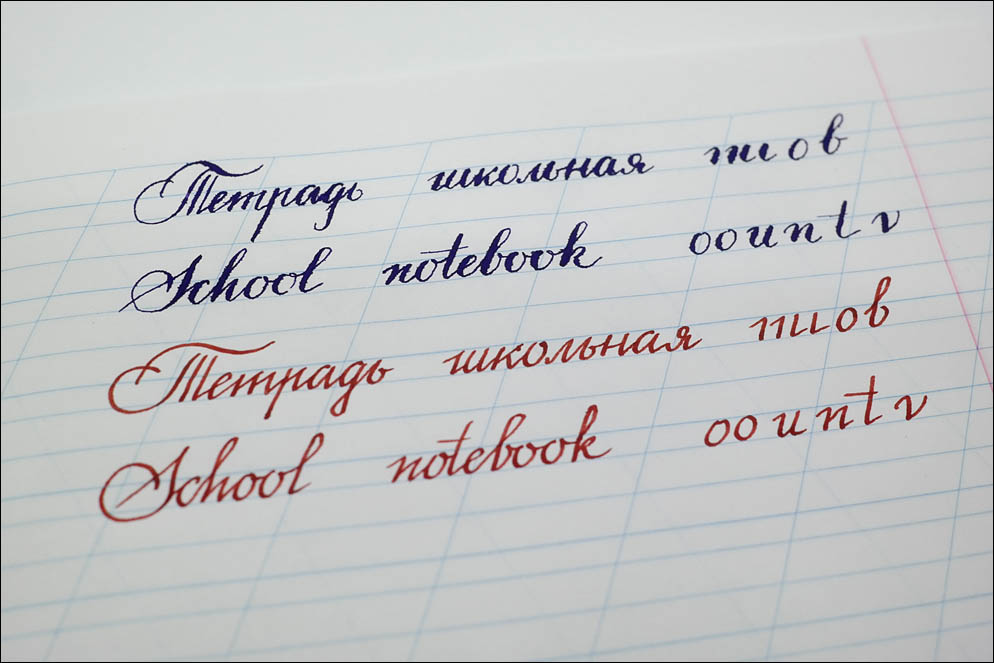 Тетрадь школьная тιов
School notebook oountv
Тетрадь школьная
School notebook oountv